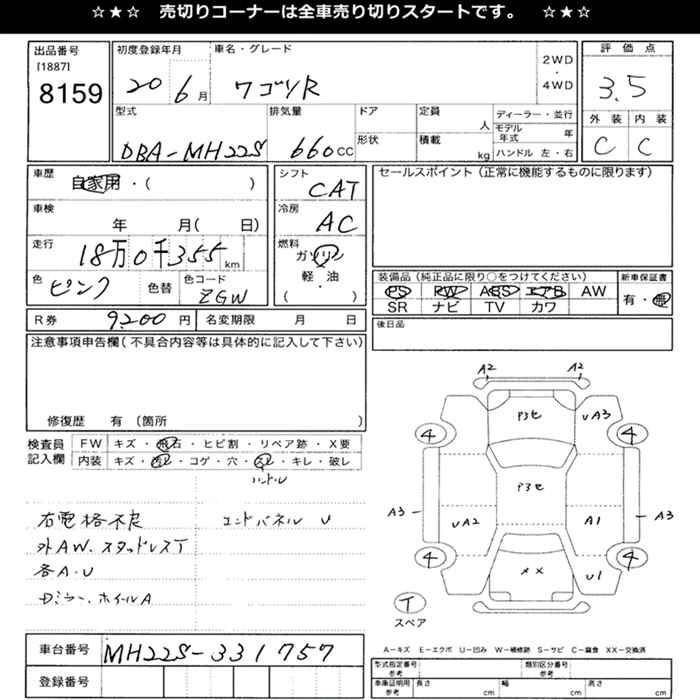 ☆★☆　売切りコーナーは全車売り切りスタートです。　☆★☆
出品番号
[1887]
8159
初度登録年月
20 6月
車名・グレード
ワゴンR
2WD
・
4WD
評価点
3.5
外装 内装
C C
型式
DBA-MH22S
排気量
660cc
ドア
形状
定員
人
積載
kg
ディーラー・並行
モデル年式 年
ハンドル 左・右
車歴
自家用・( )
車検
年 月( 日)
走行
18万0千355km
色
ピンク
色替
色コード
ZGW
シフト
CAT
冷房
AC
燃料
ガソリン
軽・油
・
( )
セールスポイント(正常に機能するものに限ります)
装備品(純正品に限り○をつけてください)
PS PW ABS エアB AW
SR ナビ TV カワ
新車保証書
有・無
R券 9,200円
名変期限 月 日
後日品
注意事項申告欄(不具合内容等は具体的に記入して下さい)
修復歴 有 〔箇所 〕
検査員
記入欄
FW キズ・飛石・ヒビ割・リペア跡・X要
内装 キズ・汚レ・コゲ・穴・スレ・キレ・破レ
ハンドル
右電格不良
エンドパネル U
外AW.スタッドレスT
各A.U
Dミラー.ホイールA
A2 A2
P3セ UA3
4 4
P3セ
A3 UA2 A1 A3
4 4
XX U1
T
スペア
車台番号 MH22S-331757
登録番号
A-キズ E-エクボ U-凹み W-補修跡 S-サビ C-腐食 XX-交換済
型式指定番号
参考
類別区分番号
参考
車庫証明用
参考
長さ cm
幅 cm
高さ cm